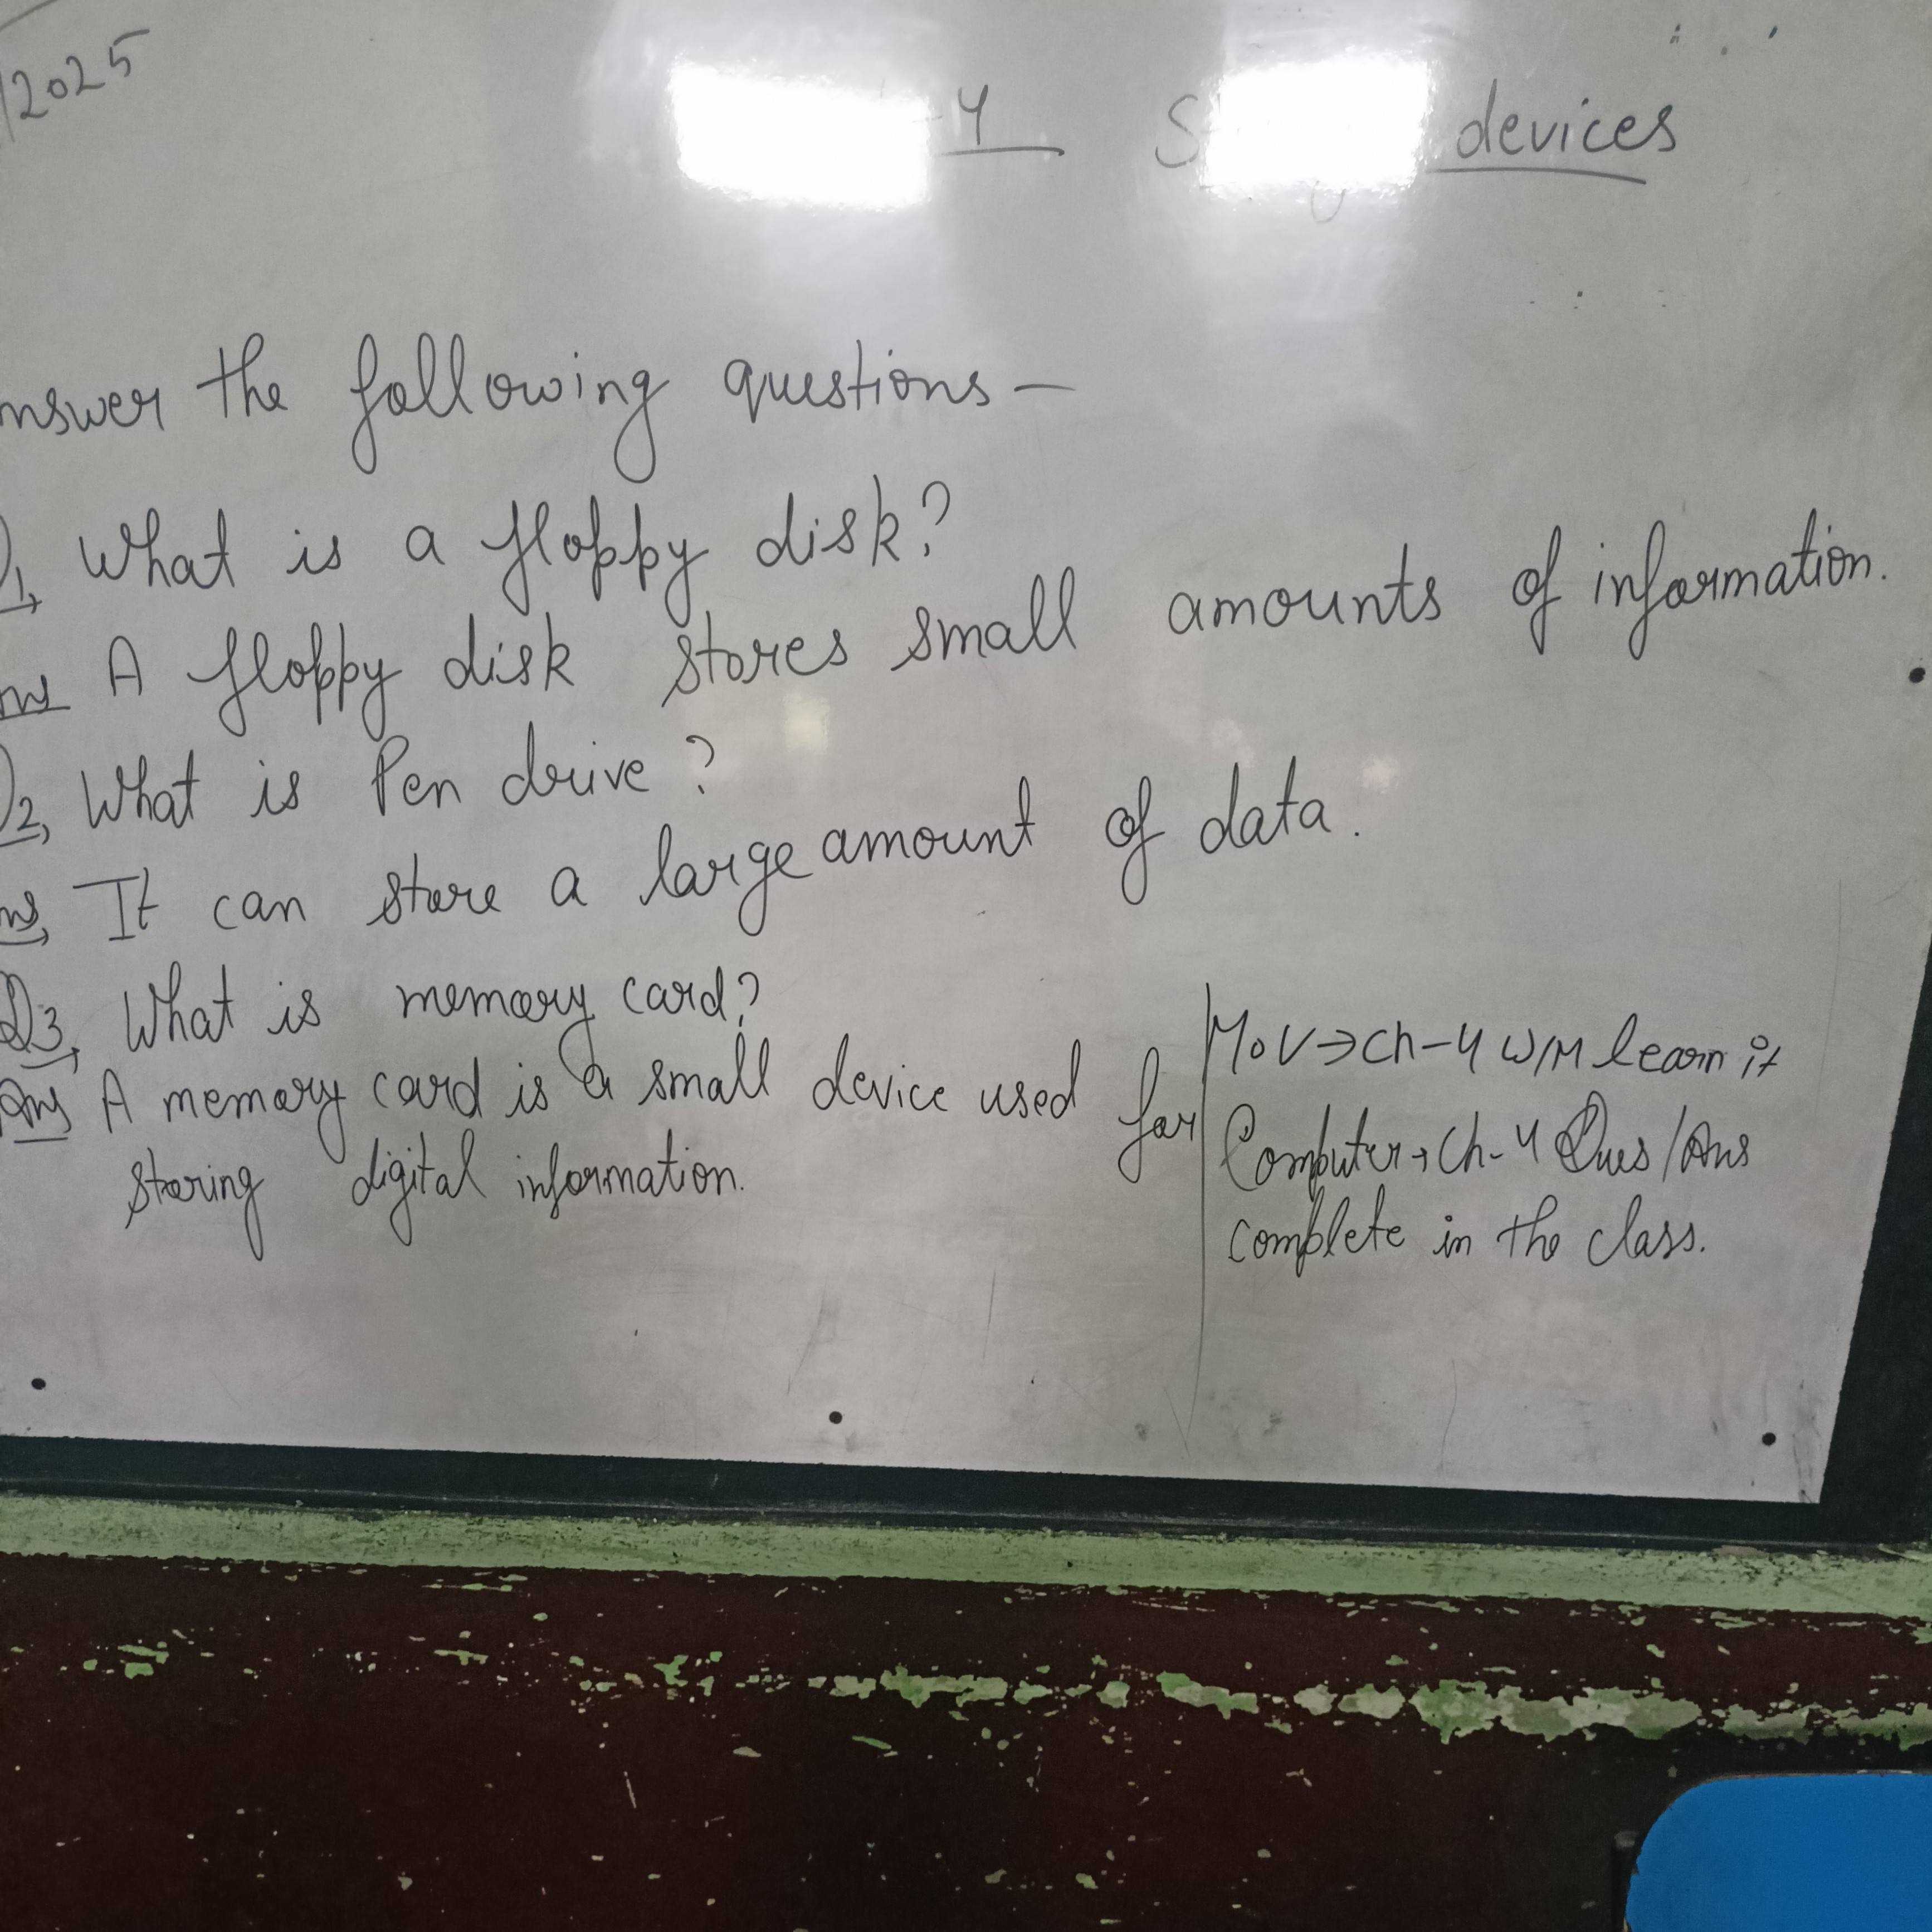 /2025
4 devices
nswer the following questions —
1, What is a floppy disk?
ns A floppy disk stores small amounts of information.
2, What is Pen drive?
ns, It can store a large amount of data.
Q3, What is memory card?
Ans A memory card is a small device used for
storing digital information.
MoV → Ch-4 W/M learn it
Computer → Ch-4 Ques/Ans
complete in the class.